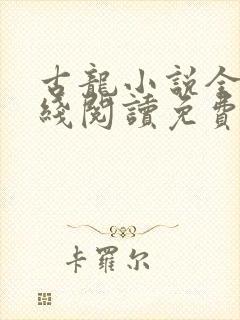 古龍小说全
綫閱讀免費
卡羅尔